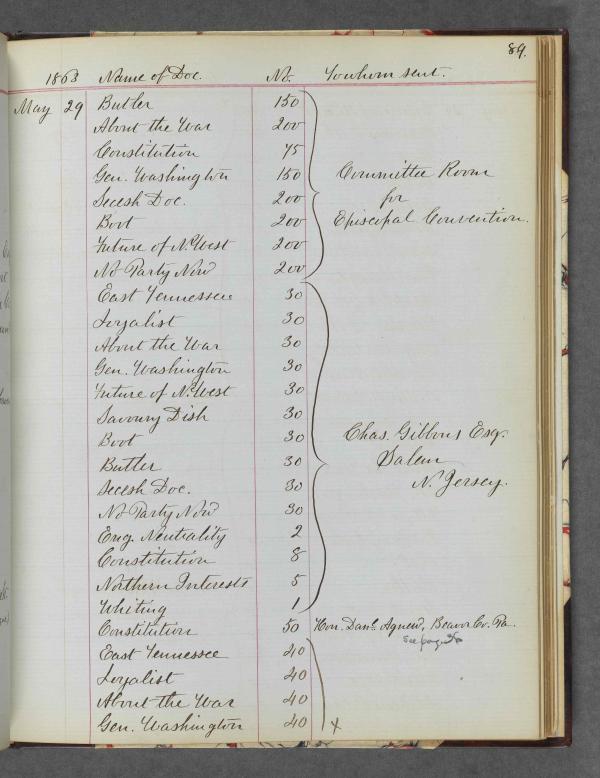 89.
1863 Name of Doc. No. To whom sent.
May 29 Butler 150
About the War 200
Constitution 75
Gen. Washington 150 Committee Room
Secesh Doc. 200 for
Boot 200 Episcopal Convention.
Future of N.West 200
No Party Now 200
East Tennessee 30
Loyalist 30
About the War 30
Gen. Washington 30
Future of N.West 30
Savoury Dish 30
Boot 30 Chas. Gibbons Esq.
Butler 30 Salem
Secesh Doc. 30 N. Jersey.
No Party Now 30
Eng. Neutrality 2
Constitution 8
Northern Interests 5
Whiting 1
Constitution 50 Hon. Danl. Agnew, Beaver Co. Pa.
see page
East Tennessee 40
Loyalist 40
About the War 40
Gen. Washington 40 x